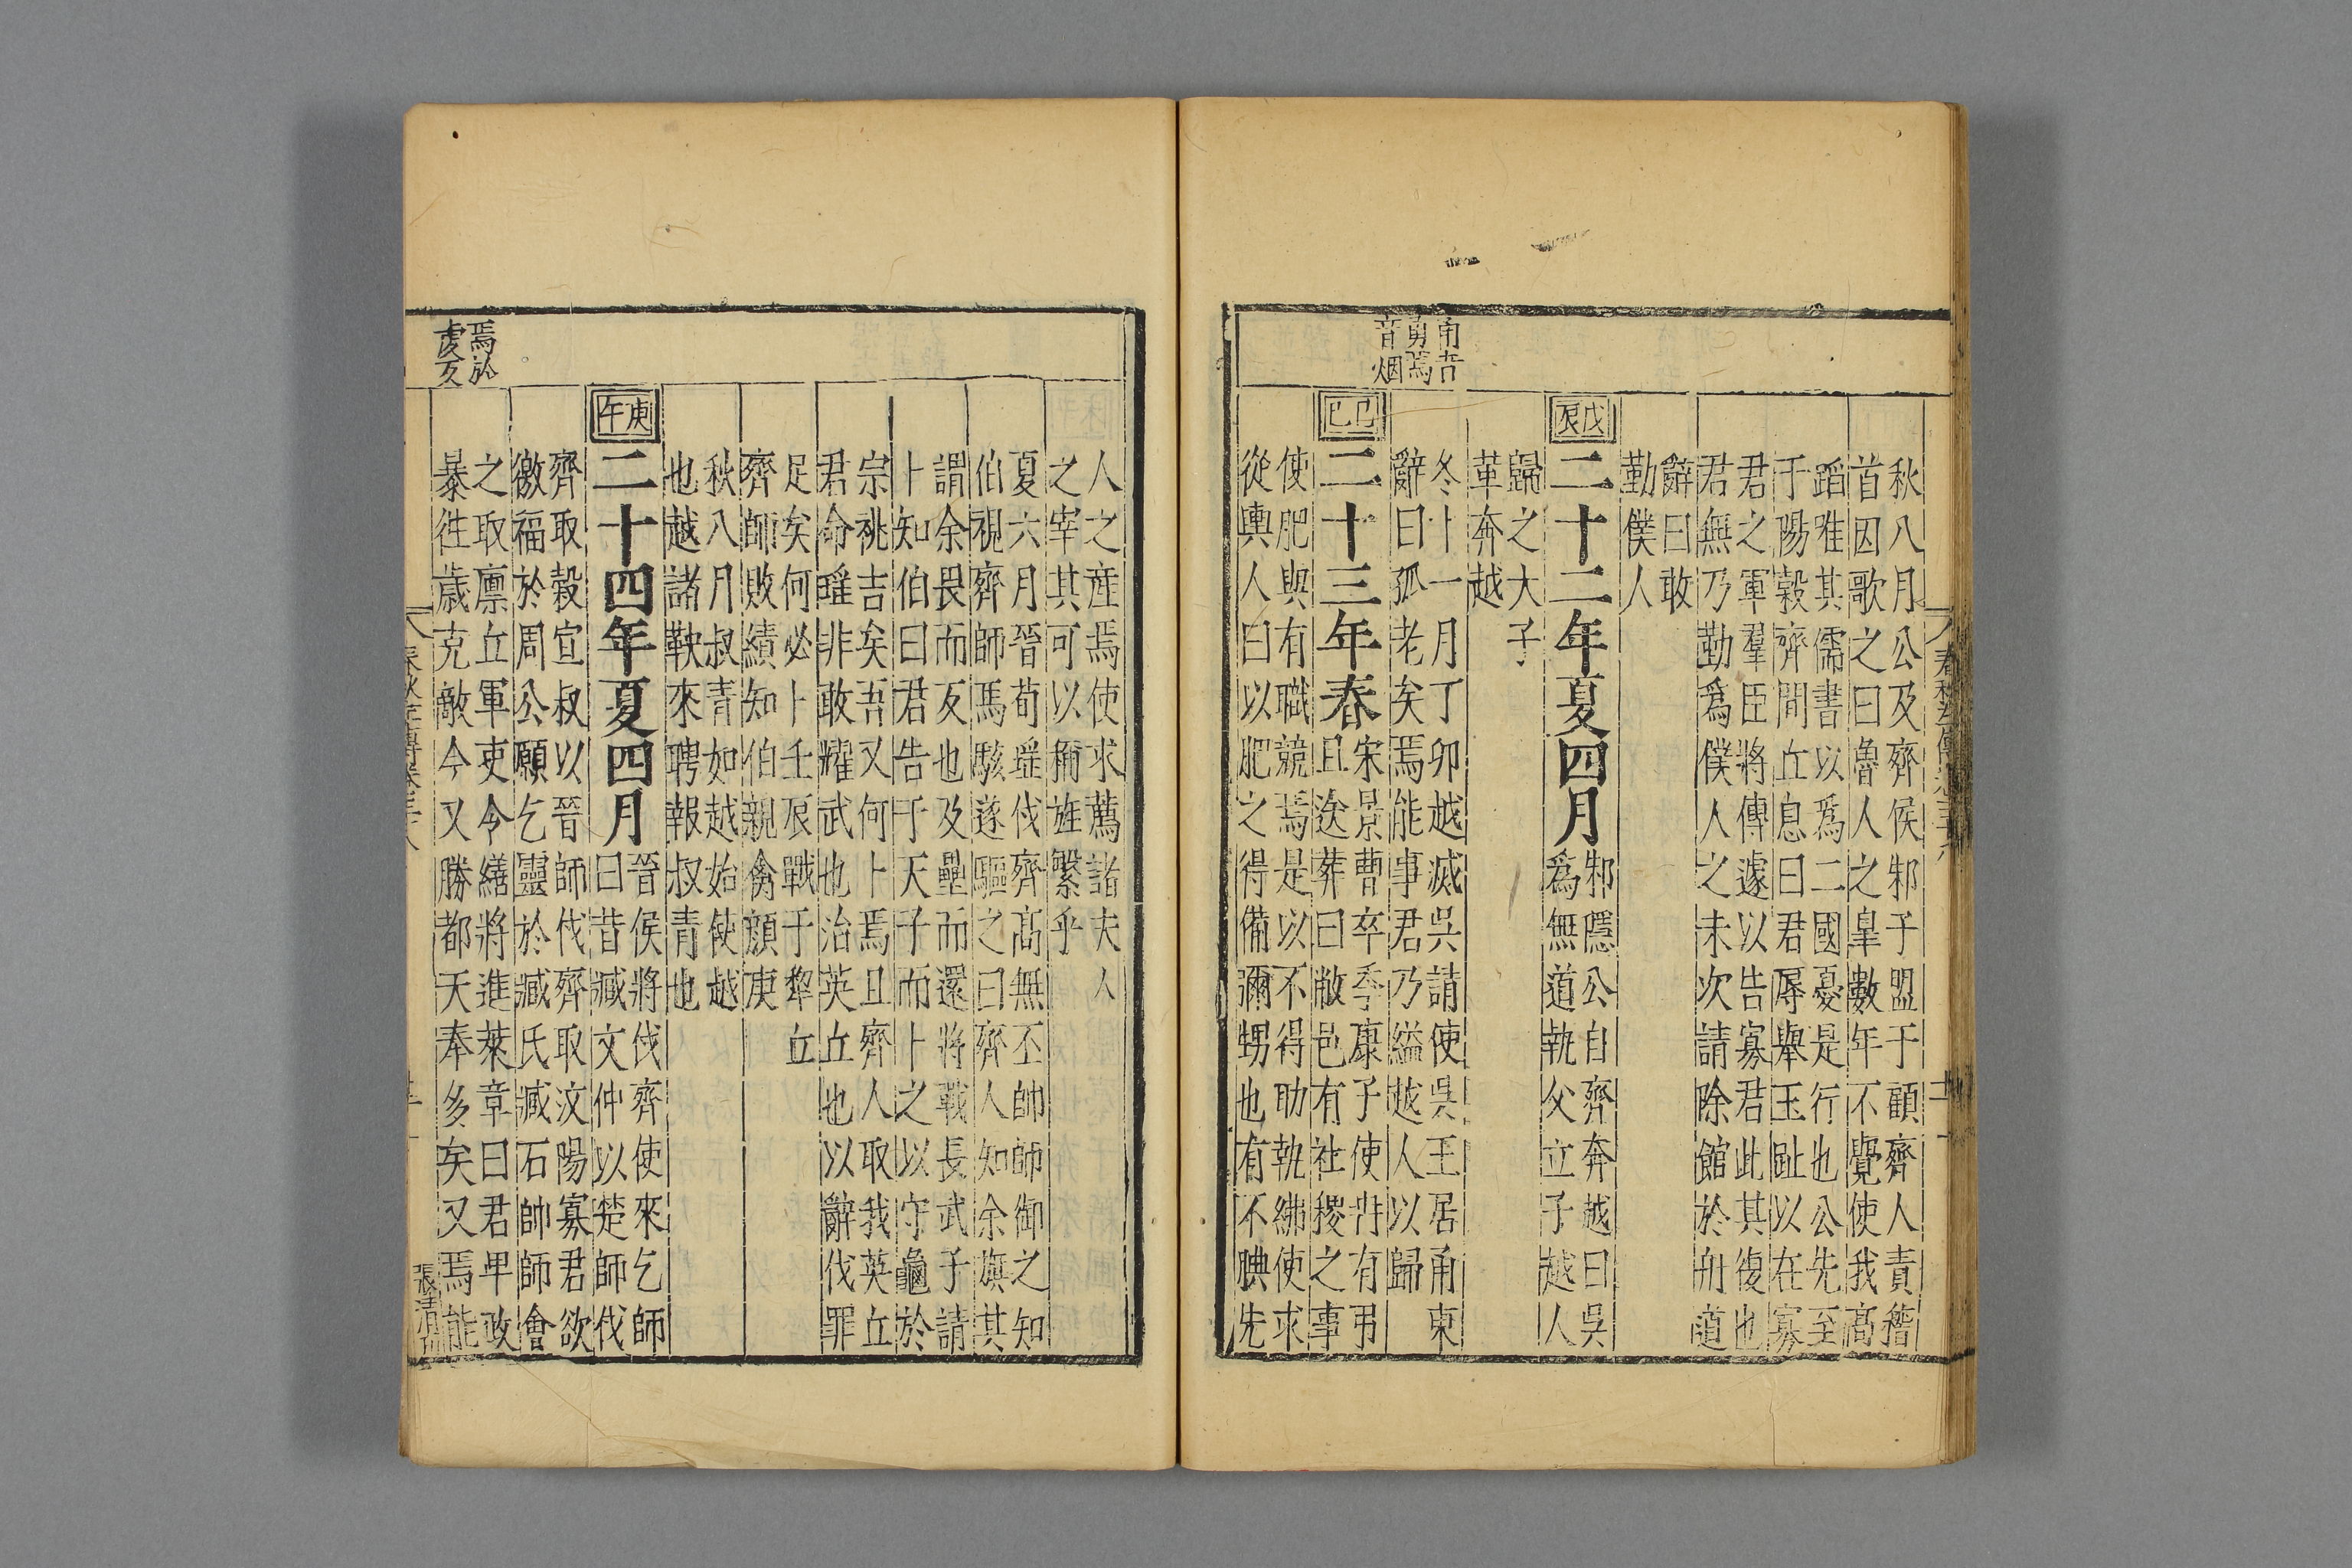 秋八月公及齊侯邾子盟于顧齊人責稽
首因歌之曰魯人之皐數年不覺使我高
蹈唯其儒書以爲二國憂是行也公先至
于陽穀齊閭丘息曰君辱舉玉趾以在寡
君之軍羣臣將傳遽以告寡君此其復也
君無乃勤爲僕人之未次請除館於舟道
辭曰敢
勤僕人
戊辰
二十二年夏四月
邾隱公自齊奔越曰吳
爲無道執父立子越人
歸之大子
革奔越
甬吉
勇焉
音烟
冬十一月丁卯越滅吳請使吳王居甬東
辭曰孤老矣焉能事君乃縊越人以歸
己巳
二十三年春
宋景曹卒季康子使冉有弔
且送葬曰敝邑有社稷之事
使肥與有職競焉是以不得助執紼使求
從輿人曰以肥之得備彌甥也有不腆先
人之産焉使求薦諸夫人
之宰其可以稱旌繁乎
夏六月晉荀瑶伐齊髙無丕帥師御之知
伯視齊師馬駭遂驅之曰齊人知余旗其
謂余畏而反也及壘而還將戰長武子請
卜知伯曰君告于天子而卜之以守龜於
宗祧吉矣吾又何卜焉且齊人取我英丘
君命瑶非敢耀武也治英丘也以辭伐罪
足矣何必卜壬辰戰于犂丘
齊師敗績知伯親禽顔庚
秋八月叔青如越始使越
也越諸鞅來聘報叔青也
庚午
二十四年夏四月
晉侯將伐齊使來乞師
曰昔臧文仲以楚師伐
齊取穀宣叔以晉師伐齊取汶陽寡君欲
徼福於周公願乞靈於臧氏臧石帥師會
焉於
虔反
之取廪丘軍吏令繕將進萊章曰君卑政
暴徃歲克敵今又勝都天奉多矣又焉能